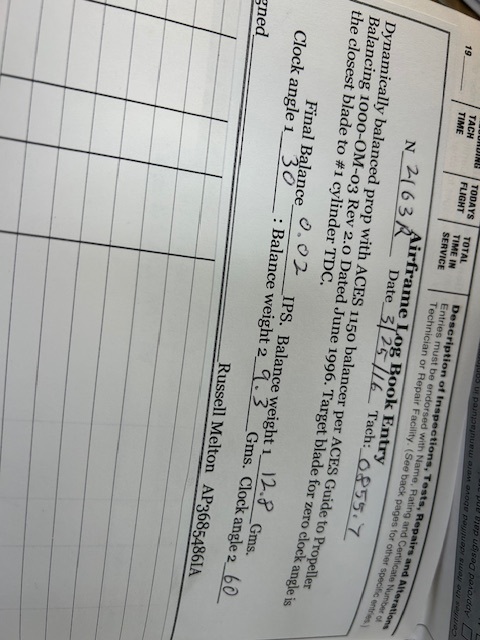 19
TACH TIME
TODAY'S FLIGHT
TOTAL TIME IN SERVICE
Description of Inspections, Tests, Repairs and Alterations
Entries must be endorsed with Name, Rating and Certificate Number of
Technician or Repair Facility. (See back pages for other specific entries)
Airframe Log Book Entry
N 2163R Date 3/25/16 Tach: 0855.7
Dynamically balanced prop with ACES 1150 balancer per ACES Guide to Propeller
Balancing 1000-OM-03 Rev 2.0 Dated June 1996. Target blade for zero clock angle is
the closest blade to #1 cylinder TDC.
Final Balance 0.02 IPS. Balance weight 1 12.8 Gms.
Clock angle 1 30 : Balance weight 2 9.3 Gms, Clock angle 2 60
gned
Russell Melton AP3685486IA